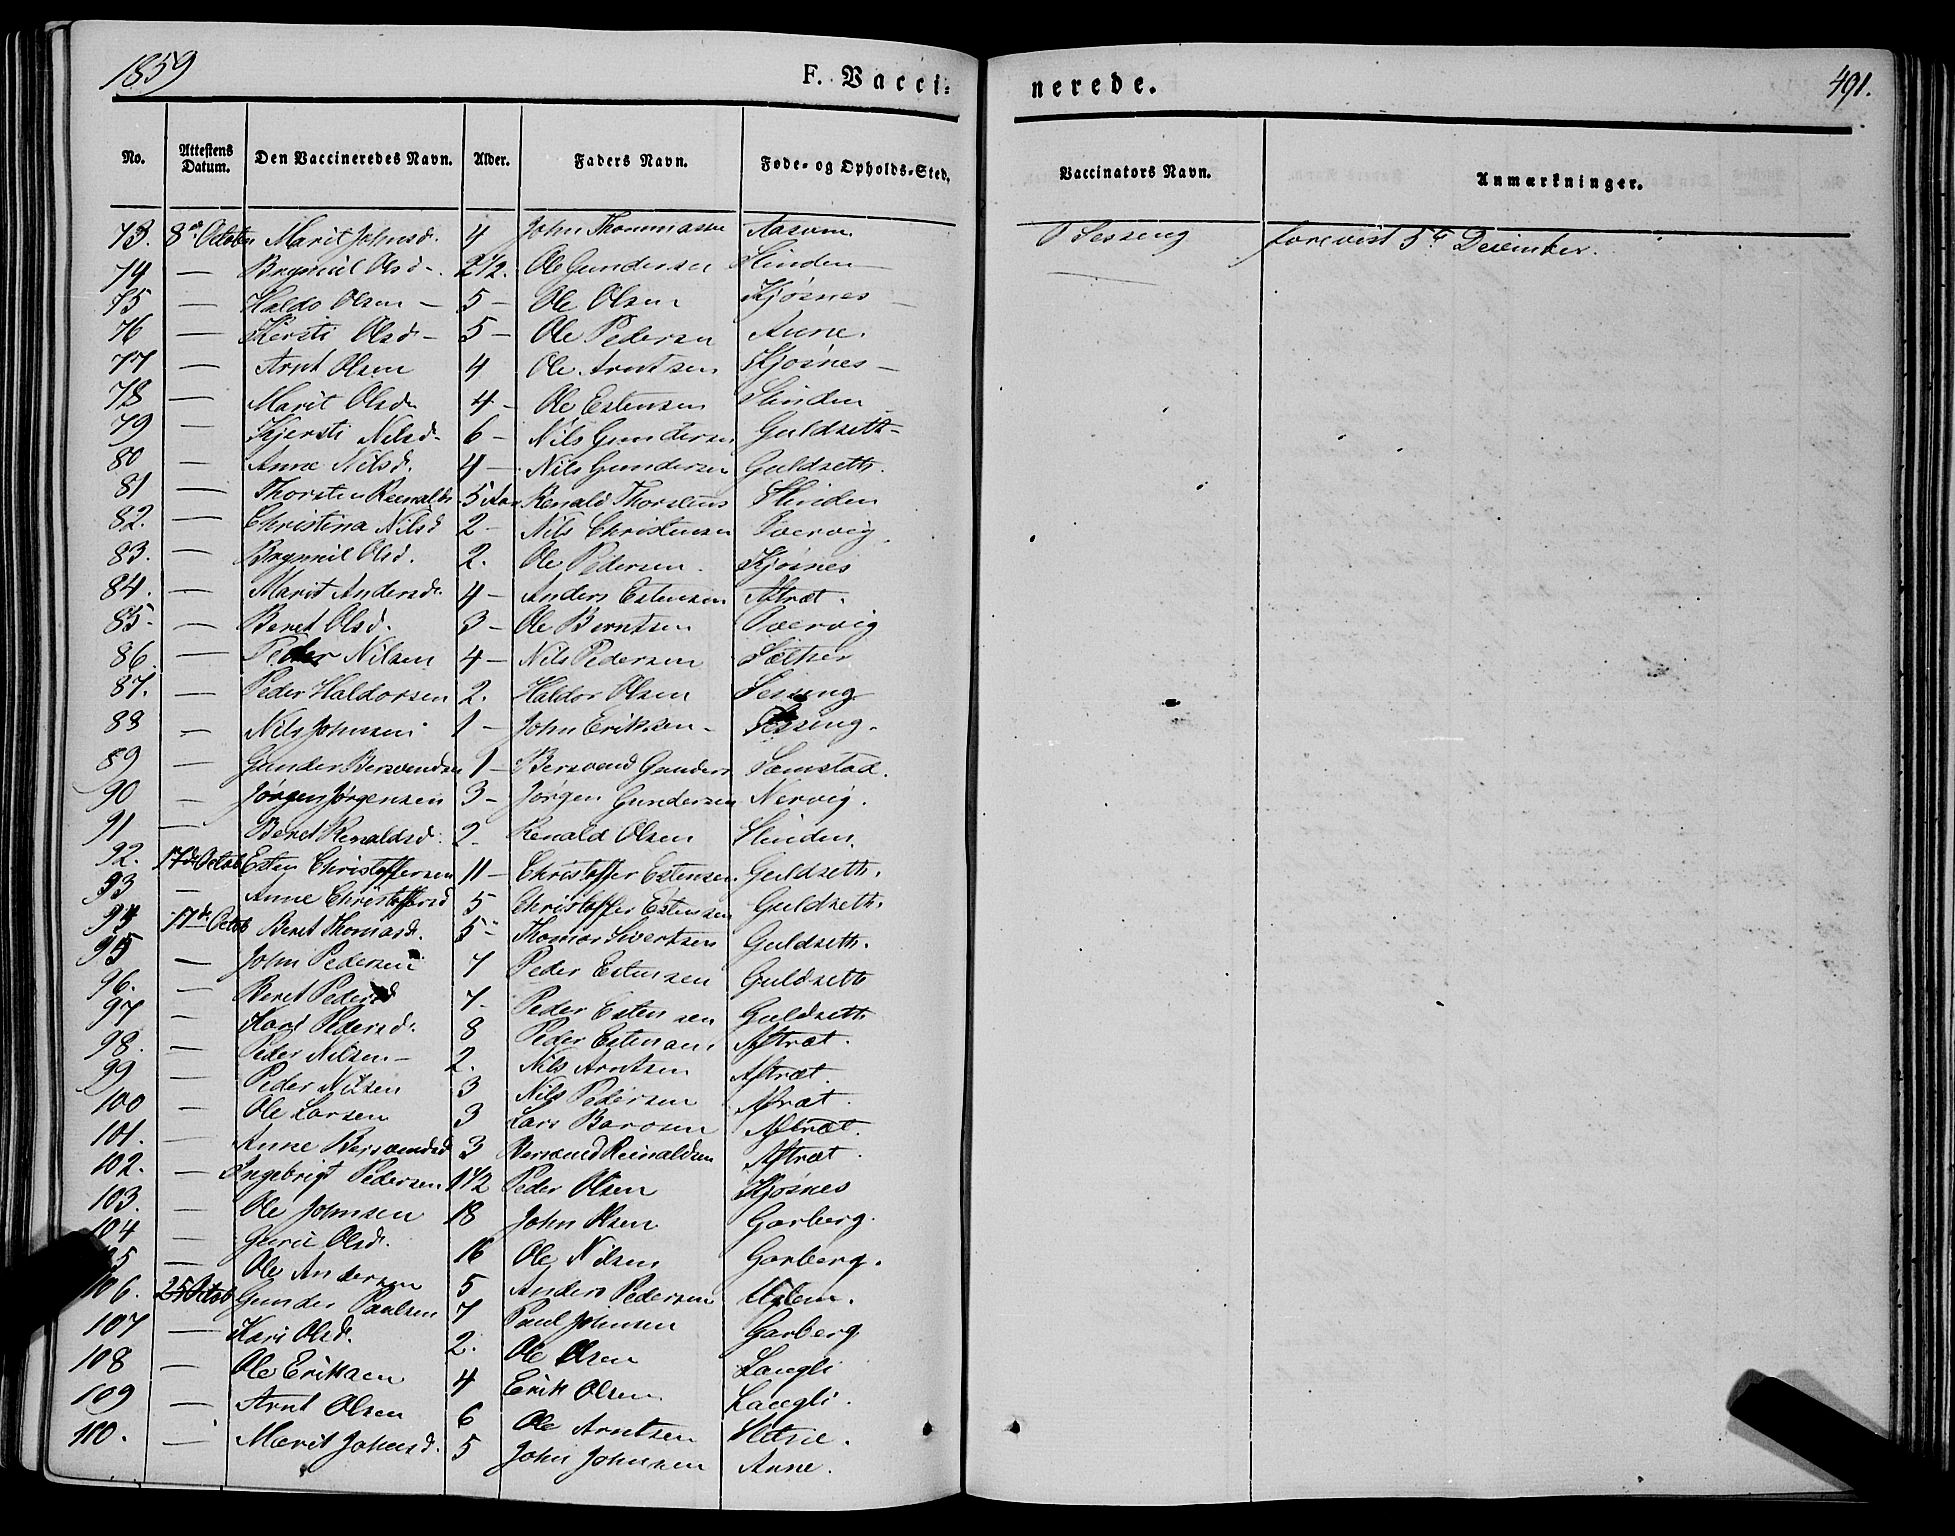 1859 F. Vacci- nerede. 491.
No. Attestens Datum. Den Vaccineredes Navn. Alder. Faders Navn. Føde- og Opholds-Sted. Vaccinators Navn. Anmærkninger.
73. 8de Octobr Marit Johnsd. 4 John Thommassen Aasum Sesseng forevist 5te Desember.
74 — Olsd. 2 1/2. Ole Gundersen Slinden
75 — Haldo Olsen — 5 — Ole Olsen Kjøsnes —
76 — Kersti Olsd — 5 — Ole Pedersen Aune.
77 — Arnt Olsen 4 Ole Arntsen Kjøsnes —
78 — Marit Olsd 4 — Ole Estensen Slinden
79 — Kjersti Nilsd. 6 — Nils Gundersen Guldseth —
80 — Anne Nilsd. 4 — Nils Gundersen Guldseth.
81 — Thorsten Renalds 5 Aar Renald Thorstens Slinden
82. — Christina Nilsd 2 — Nils Christensen Tvervig.
83. — Olsd. 2. Ole Pedersen. Kjøsnes
84. — Marit Andersd. 4 — Anders Estensen Aftræt.
85. — Beret Olsd. 3 — Ole Berntsen Tvervig
86. — Peder Nilsen 4 — Nils Pedersen Sæther
87. — Peder Haldorsen 2. Haldor Olsen Sesseng
88 — Nils Johnsen 1 — John Eriksen — Sesseng.
89 — Gunder Bersvendsen 1 — Bersvend Gunders Semstad.
90 — Jørgen Jørgensen 3 — Jørgen Gundersen Nervig.
91 — Beret Renaldsd. 2 — Renald Olsen Slinden.
92. 17de Octob Esten Christoffersen 11 — Christoffer Estensen. Guldseth.
93 — Anne Christoffersd 5 Christoffer Estensen Guldseth.
94 17de Octob Beret Thomasd. 5 — Thomas Sivertsen Guldseth.
95 — John Pedersen 7 Peder Estensen Guldseth
96. — Beret Pedersd 7. Peder Estensen Guldseth
97 — Kari Pedersd. 8 Peder Estensen Aftræt.
98. — Peder Nilsen — 2. Nils Arntsen Aftræt.
99 — Peder Nilsen 3 Nils Pedersen Aftræt.
100 — Ole Larsen 3 Lars Aftræt.
101. — Anne Bersvendsd 3 Bersvend Reinaldsen Aftræt.
102. — Ingebrigt Pedersen 1 1/2 Peder Olsen Kjøsnes
103. — Ole Johnsen 18 John Olsen Garberg.
104 — Guru Olsd. 16 Ole Nilsen Garberg.
105 — Ole Andersen 5 Anders Pedersen
106. 25 Octob Gunder Paulsen 7 Paul Johnsen Garberg
107 — Kari Olsd. 2. Ole Olsen Langli
108 — Ole Eriksen 4 Erik Olsen Langli.
109 — Arnt Olsen 6 Ole Arntsen
110. — Marit Johnsd. 5 John Johnsen Aune.